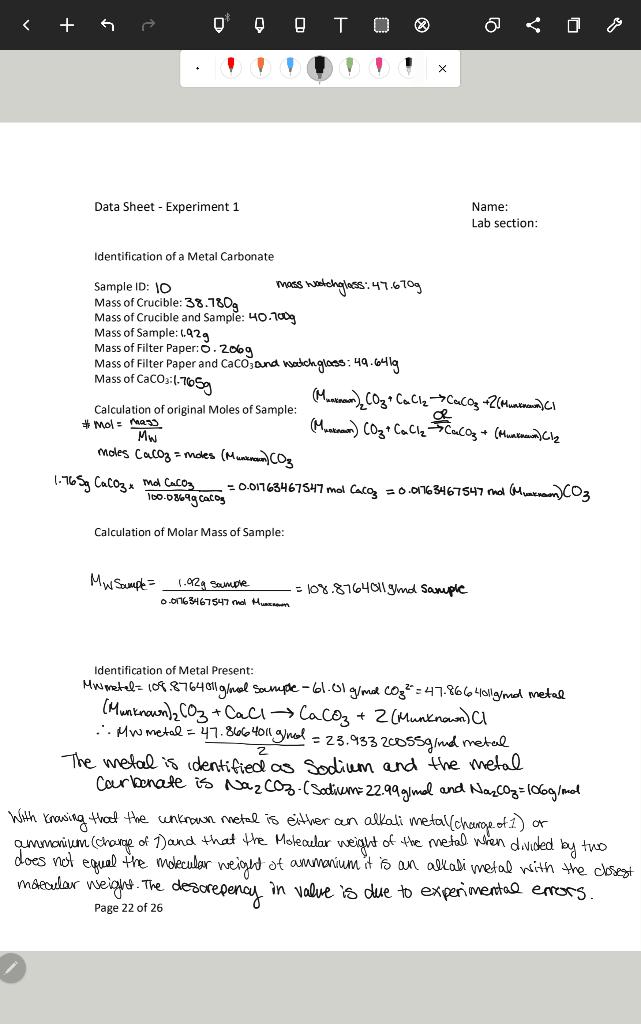 T
Data Sheet - Experiment 1
Name:
Lab section:
Identification of a Metal Carbonate
Sample ID: 10
mass watchglass: 47.670g
Mass of Crucible: 38.780g
Mass of Crucible and Sample: 40.700g
Mass of Sample: 1.92g
Mass of Filter Paper: 0.206g
Mass of Filter Paper and CaCO3 and watchglass: 49.641g
Mass of CaCO3: 1.765g
(Munknown)2CO3 + CaCl2 → CaCO3 + 2(Munknown)Cl
Calculation of original Moles of Sample:
OR
# mol = mass / MW
(Munknown)CO3 + CaCl2 → CaCO3 + (Munknown)Cl2
moles CaCO3 = moles (Munknown)CO3
1.765g CaCO3 x mol CaCO3 / 100.0869g CaCO3 = 0.01763467547 mol CaCO3 = 0.01763467547 mol (Munknown)CO3
Calculation of Molar Mass of Sample:
MW Sample = 1.92g sample / 0.01763467547 mol Munknown = 108.8764011g/mol Sample
Identification of Metal Present:
MW metal = 108.8764011g/mol sample - 61.01 g/mol CO3²⁻ = 47.8664011g/mol metal
(Munknown)2CO3 + CaCl → CaCO3 + 2(Munknown)Cl
∴ MW metal = 47.8664011g/mol / 2 = 23.93320055g/mol metal
The metal is identified as Sodium and the metal
Carbonate is Na2CO3. (Sodium = 22.99g/mol and Na2CO3 = 106g/mol
With knowing that the unknown metal is either an alkali metal (charge of 1) or
ammonium (charge of 1) and that the Molecular weight of the metal when divided by two
does not equal the molecular weight of ammonium it is an alkali metal with the closest
molecular weight. The descrepency in value is due to experimental errors.
Page 22 of 26